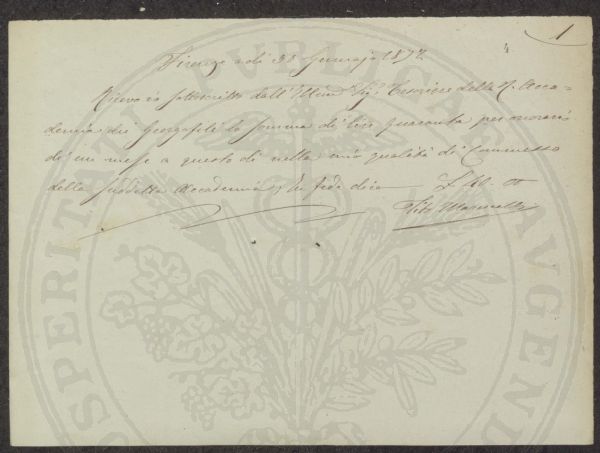 1
4.
Firenze a dì 31 Gennajo 1872
Ricevo io sottoscritto dall'Illmo Sig. Tesoriere della R. Acca-
demia dei Georgofili la somma di lire quaranta per onorario
di un mese a questo dì nella mia qualità di Commesso
della suddetta Accademia, In fede dico £ 40. 00
PUBLICAE
PROSPERITATI
AUGENDAE